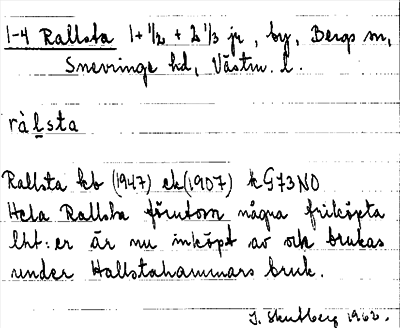 1-4 Rallsta 1+1/2 + 2 1/3 jr, by, Bergs sn,
Snevringe hd, Västm. l.
ràlsta
Rallsta kb (1947) ek (1907) k G73NO
Hela Rallsta förutom några friköpta
lht:er är nu inköpt av och brukas
under Hallstahammars bruk.
J. Skutberg 1962.